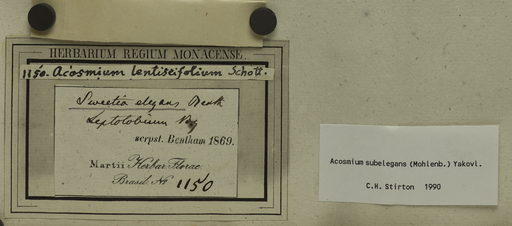 HERBARIUM REGIUM MONACENSE.
1150. Acosmium lentiscifolium Schott.
Sweetia elegans Benth
Leptolobium
scrpst. Bentham 1869.
Martii Herbar. Florae
Brasil. No 1150
Acosmium subelegans (Mohlenb.) Yakovl.
C.H. Stirton 1990